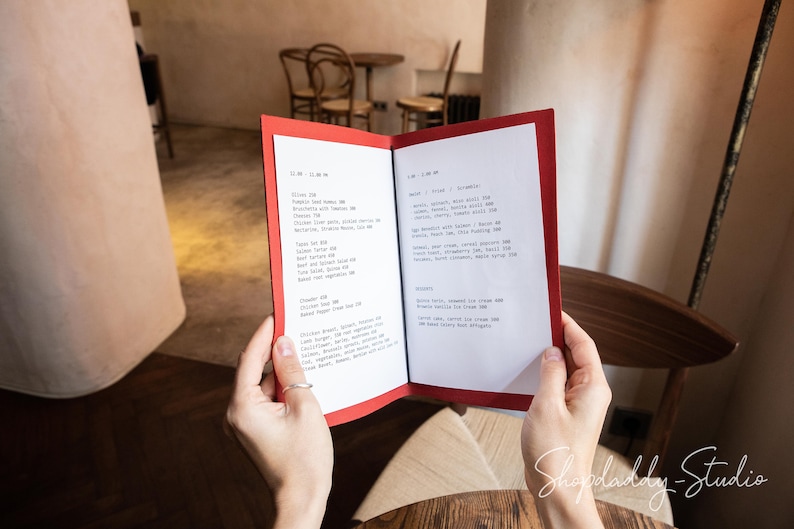 12.00 - 11.00 PM
Olives 250
Pumpkin Seed Hummus 300
Bruschetta with Tomatoes 300
Cheeses 750
Chicken liver pate, pickled cherries 300
Nectarine, Straking Mousse, Caju 400
Tapas Set 850
Salmon Tartar 450
Beef tartare 450
Beef and Spinach Salad 450
Tuna Salad, Quinoa 450
Baked root vegetables 300
Chowder 450
Chicken Soup 300
Baked Pepper Cream Soup 250
Chicken Breast, Spinach, Potatoes 450
Lamb burger, 350 root vegetables chips
Cauliflower, barley, mushrooms 450
Salmon, Brussels sprouts, potatoes 500
Cod, vegetables,
Steak Bavet, Romano, Broken with aioli
- 1.00 AM
Omelet / Fried / Scramble:
spinach, miso aioli 350
- salmon, fennel, bonita aioli 400
- chorizo, cherry, tomato aioli 350
Eggs Benedict with Salmon / Bacon 40
Granola, Peach Jam, Chia Pudding 300
Oatmeal, pear cream, cereal popcorn 300
French toast, strawberry jam, basil 350
Pancakes, burnt cinnamon, maple syrup 350
DESSERTS
Quince terin, seaweed ice cream 400
Brownie Vanilla Ice Cream 300
Carrot cake, carrot ice cream 300
300 Baked Celery Root Affogato
Shopdaddy-Studio